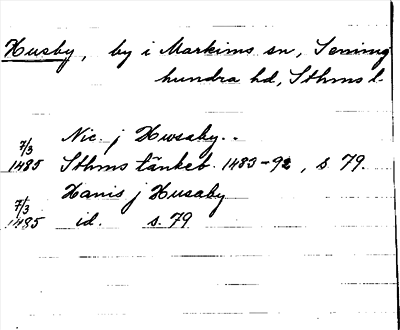 Husby, by i Markims sn, Seming
hundra hd, Sthms l.
7/3 1485 Nic. j Hwsaby..
Sthms tänkeb. 1483-92, s. 79.
7/3 1485 Hanis j Husaby
id. s. 79